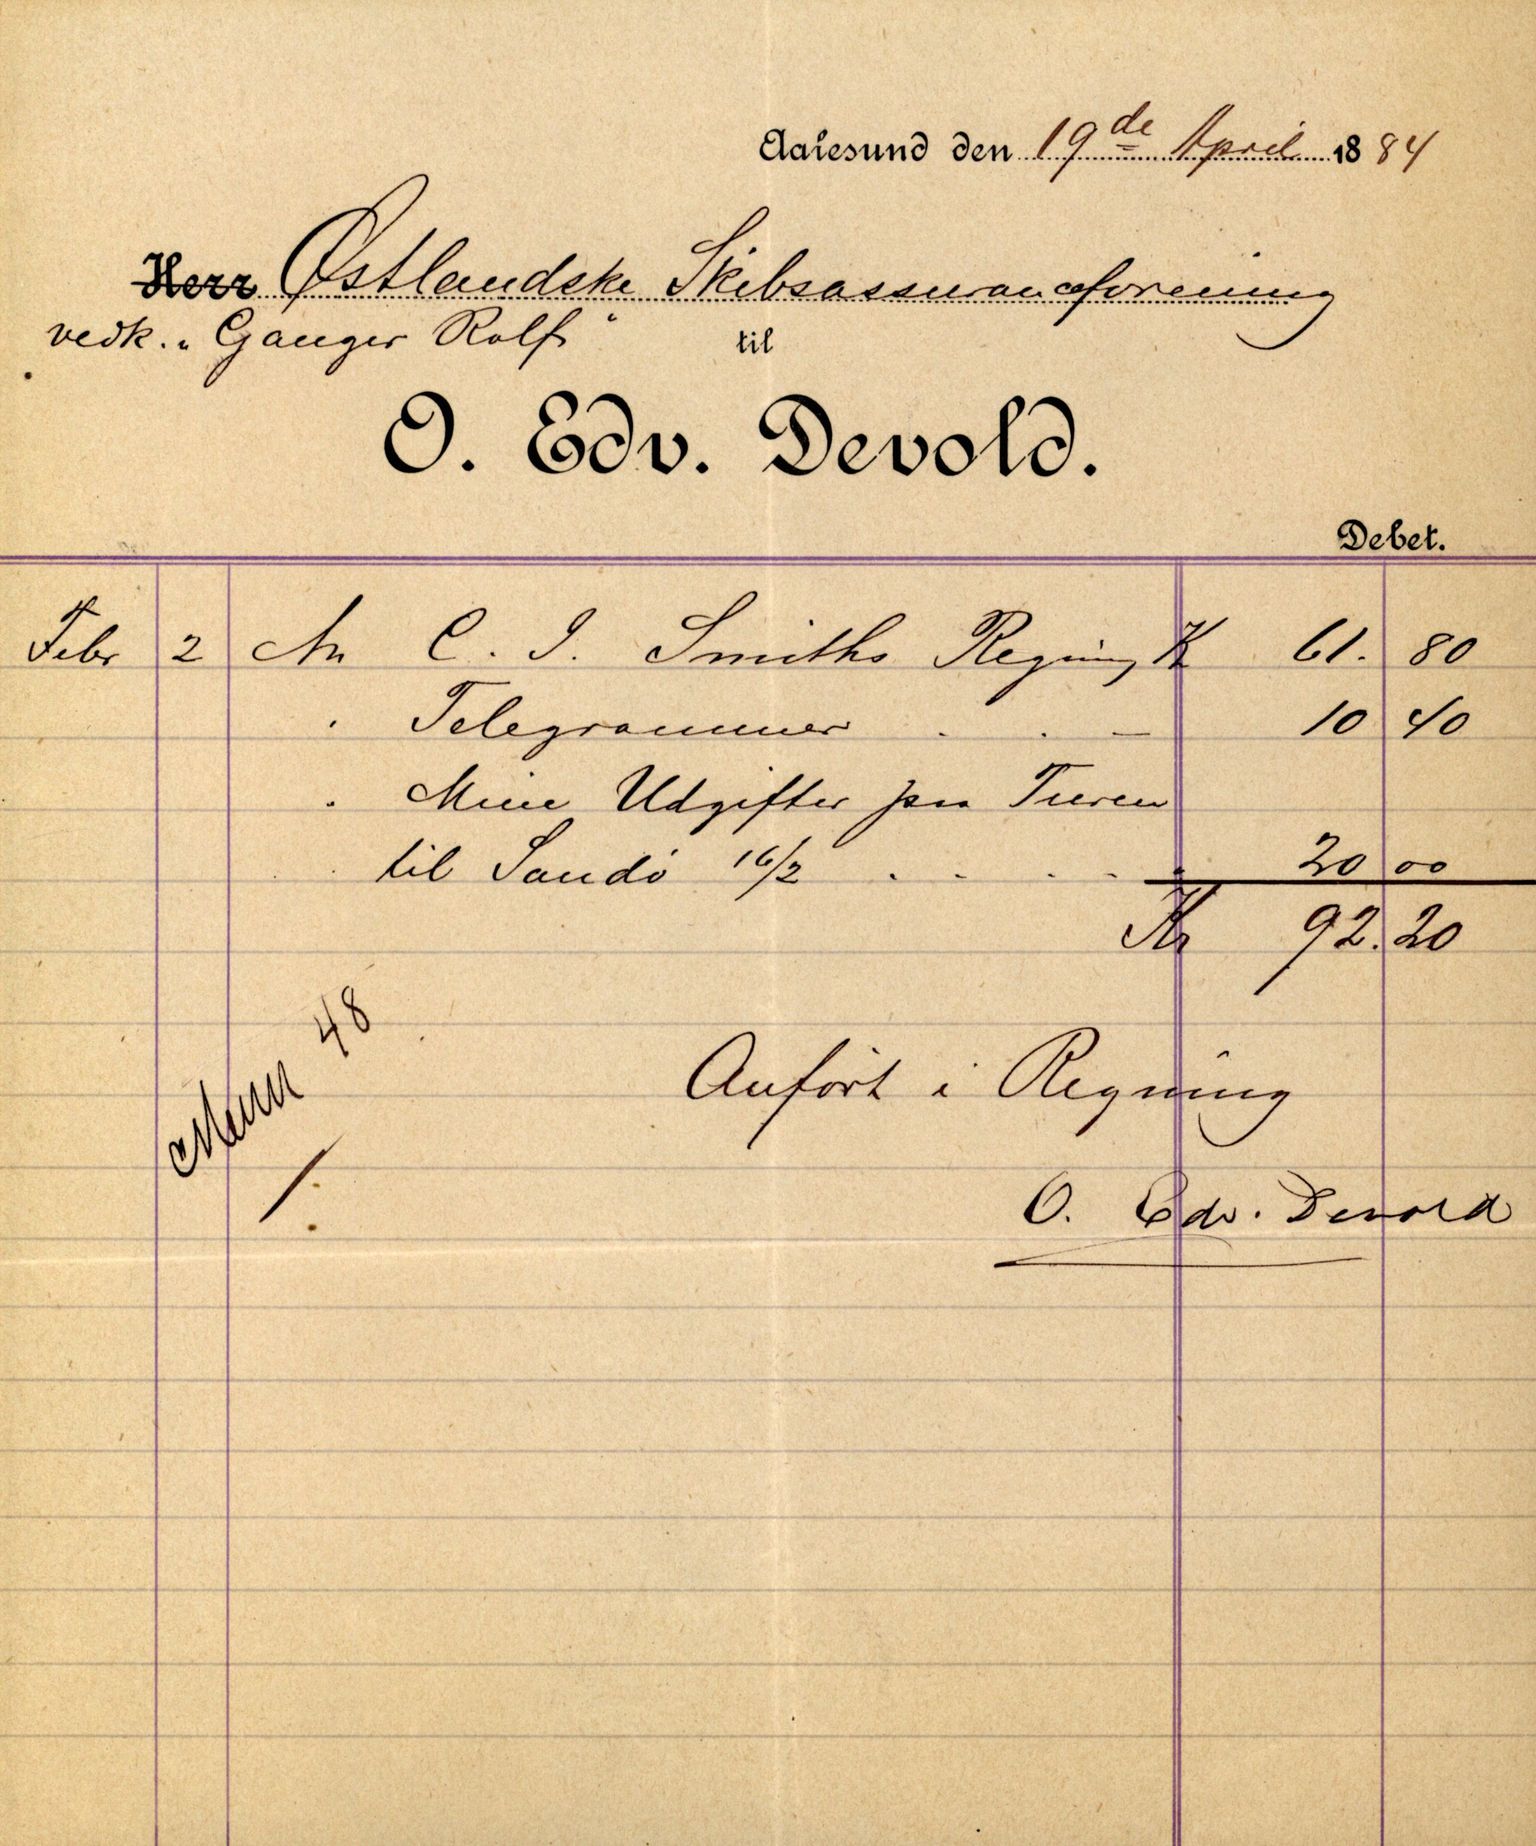 Aalesund den 19de April 1884
Herr Østlandske Skibsassuranceforening
vedk. "Ganger Rolf"
til
O. Edv. Devold.
Debet.
Febr 2 An C. I. Smiths Regning Kr 61. 80
" Telegrammer . . — 10 40
" Mine Udgifter paa Turen
til Sandö 16/2 . . . . " 20 00
Kr 92.20
48
Anfört i Regning
O. Edv. Devold